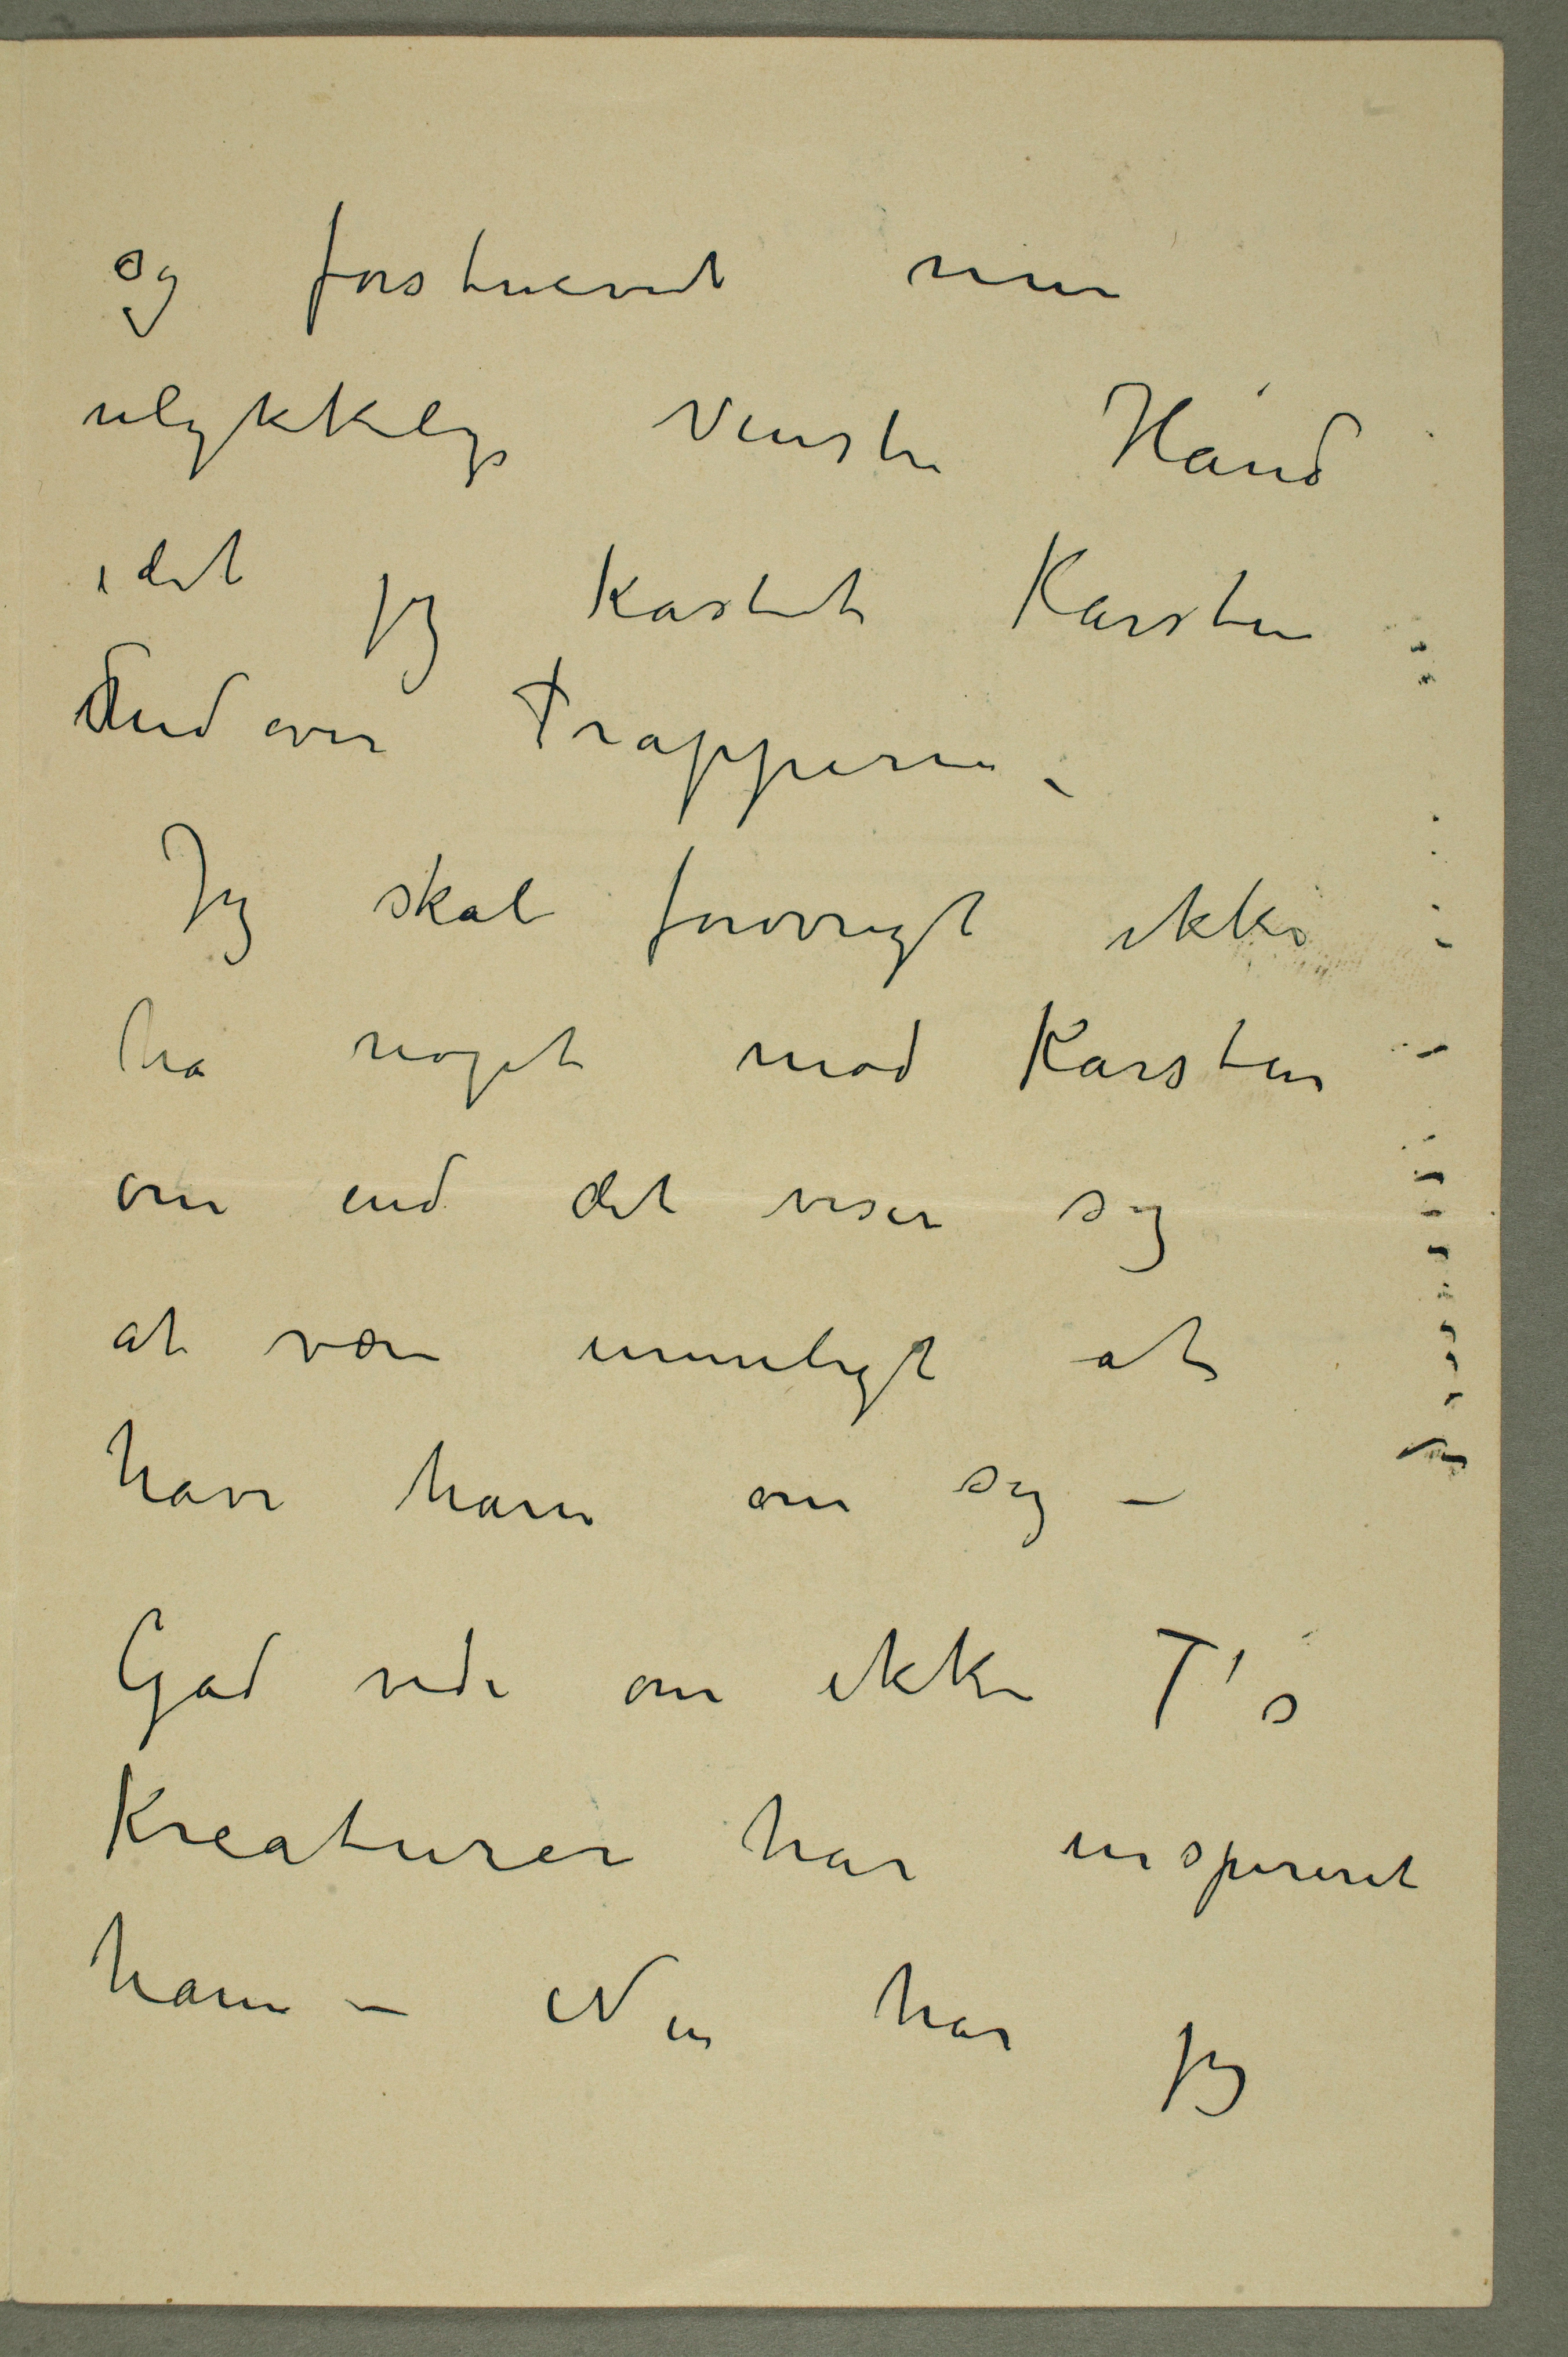 og forstuevet min
ulykkelige venstre Hånd
idet jeg kastet Karsten
ned over Trapperne –
Jeg skal forøvrigt ikke
ha noget mod Karsten
om end det viser sig
at være umuligt at
have ham om sig –
Gad vide om ikke T's
Kreaturer har inspireret
ham – Nu har jeg